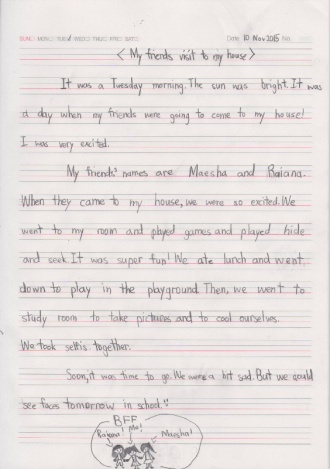 SUN○ MON○ TUE○ WED○ THU○ FRI○ SAT○ Date 10 Nov 2015 No.
< My friends visit to my house >
It was a Tuesday morning. The sun was bright. It was
a day when my friends were going to come to my house!
I was very excited.
My friends' names are Maesha and Raiana.
When they came to my house, we were so excited. We
went to my room and played games and played hide
and seek. It was super fun! We ate lunch and went
down to play in the playground. Then, we went to
study room to take pictures and to cool ourselves.
We took selfis together.
Soon, it was time to go. We were a bit sad. But we could
see faces tomorrow in school.!!
BFF
Raiana! Me! Maesha!